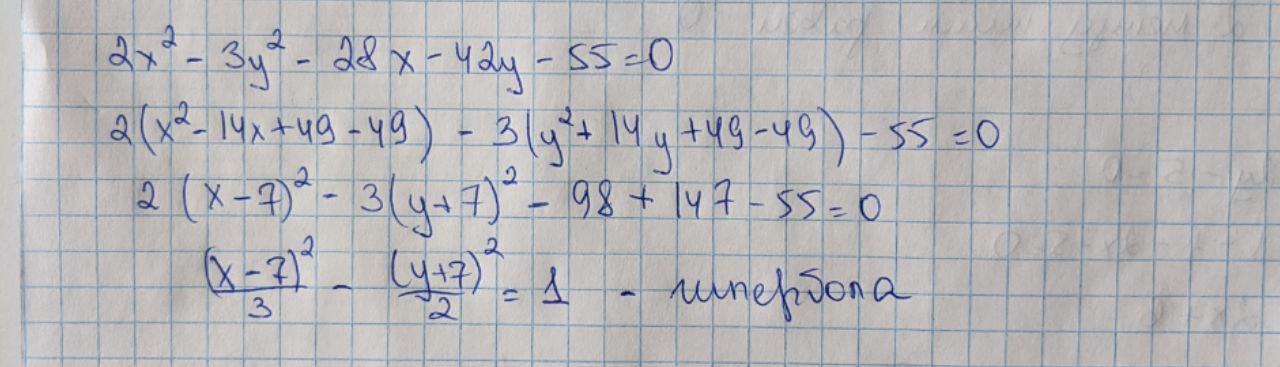 2x² - 3y² - 28x - 42y - 55 = 0
2(x² - 14x + 49 - 49) - 3(y² + 14y + 49 - 49) - 55 = 0
2(x - 7)² - 3(y + 7)² - 98 + 147 - 55 = 0
(x - 7)²/3 - (y + 7)²/2 = 1 - гипербола